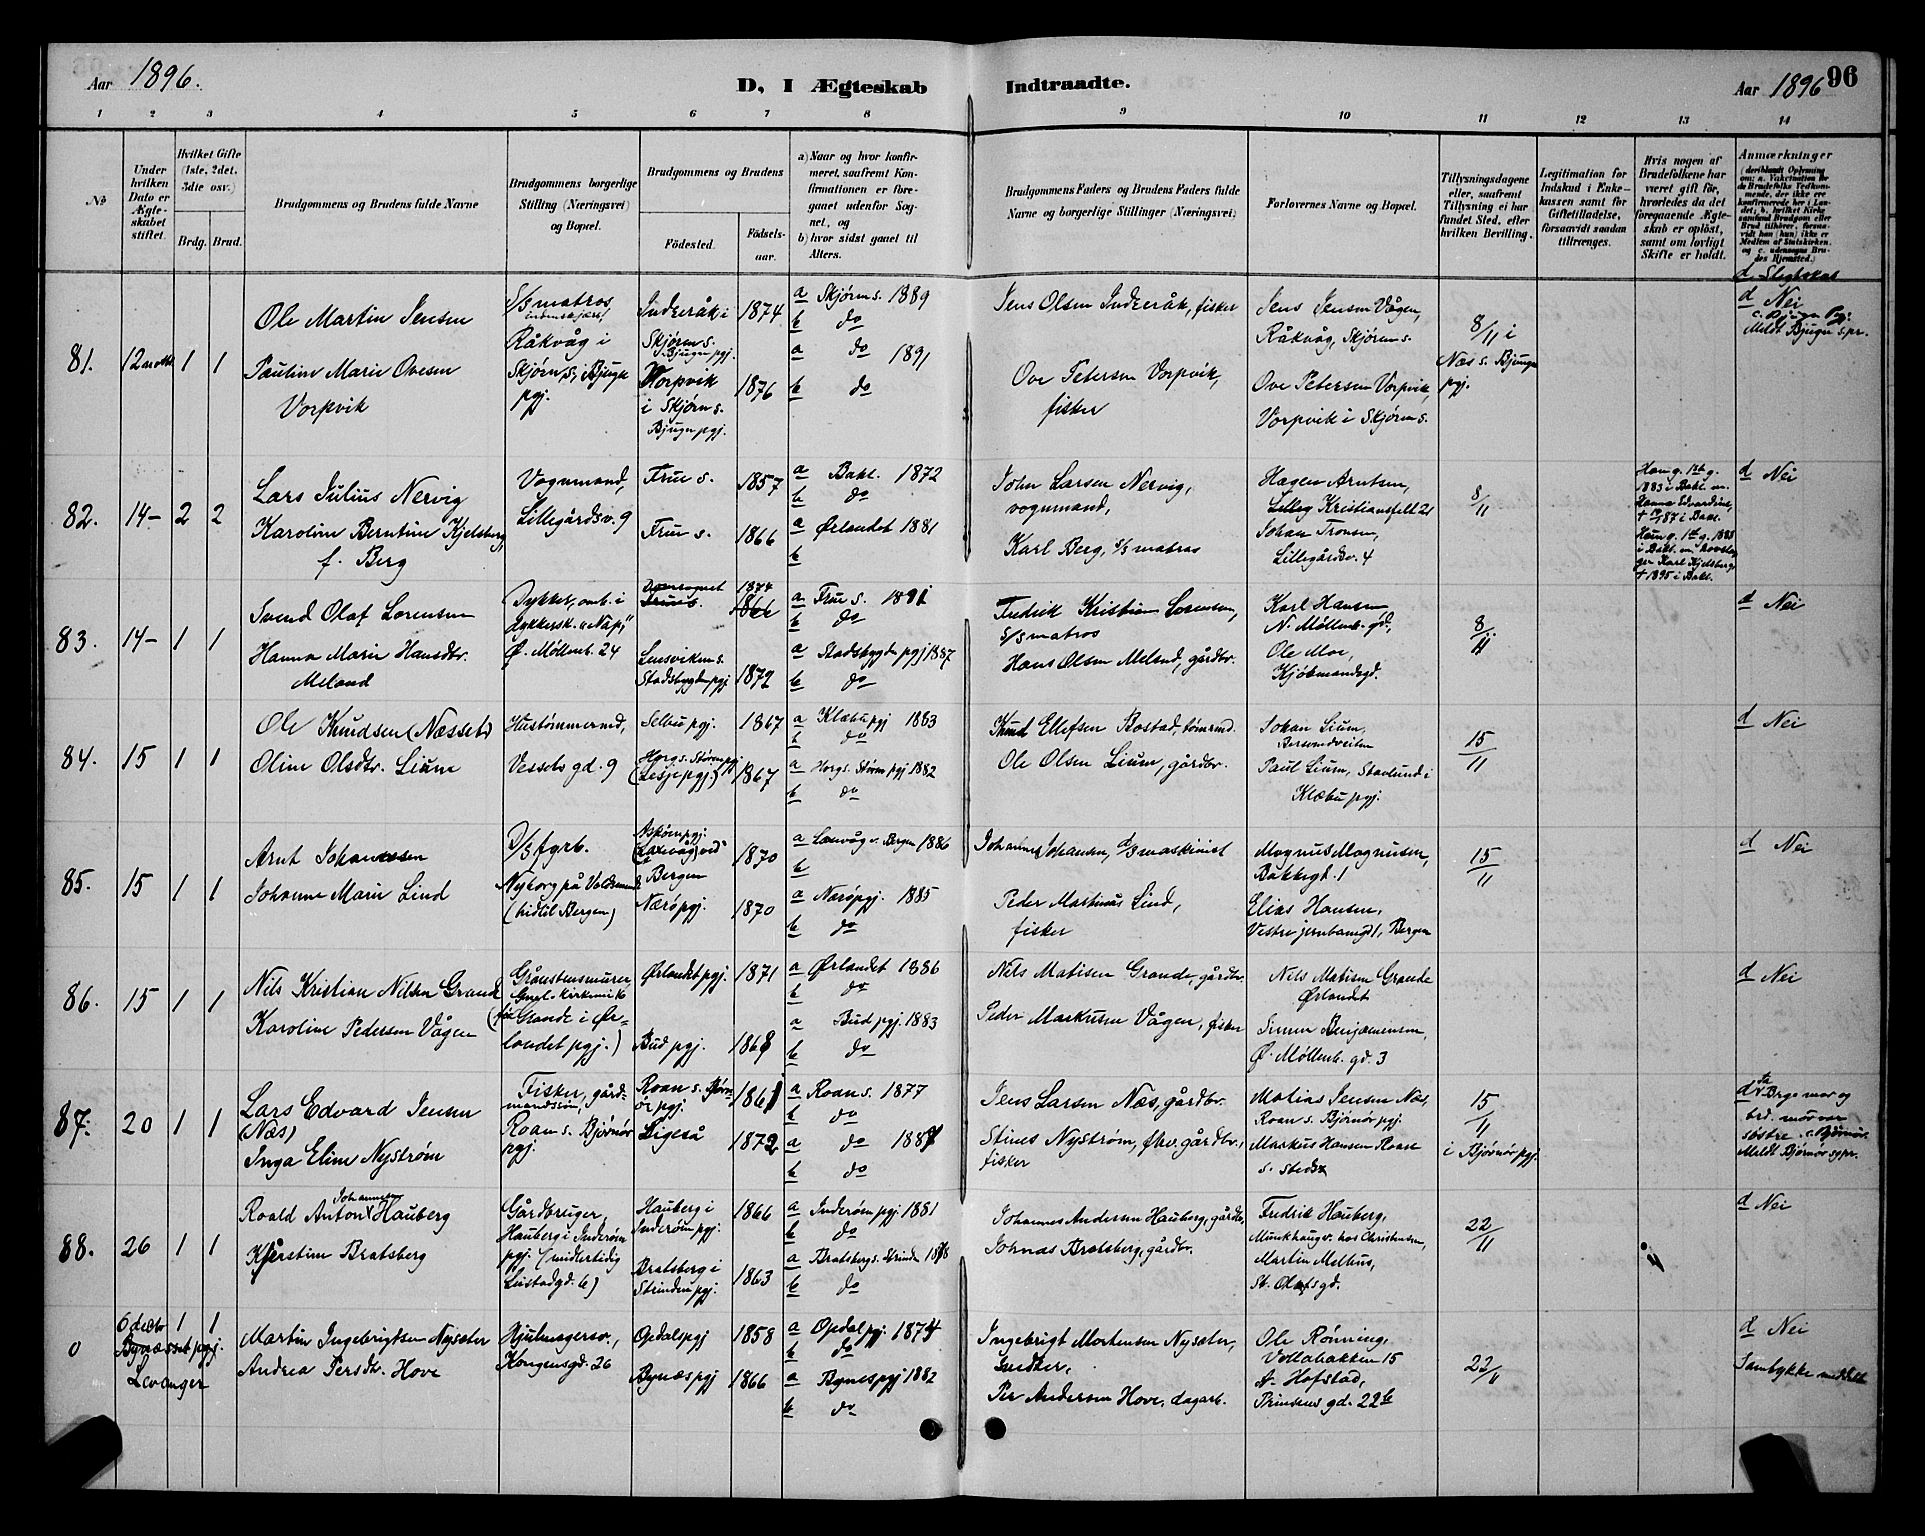 Aar 1896.
D, I Ægteskab Indtraadte.
Aar 1896 96
1 2 3 4 5 6 7 8 9 10 11 12 13 14
No
Under hvilken Dato er Ægteskabet stiftet.
Hvilket Gifte (1ste, 2det, 3die osv.)
Brdg. Brud.
Brudgommens og Brudens fulde Navne
Brudgommens borgerlige Stilling (Næringsvei) og Bopæl.
Brudgommens og Brudens
Födested.
Födselsaar.
a) Naar og hvor konfirmeret, saafremt Konfirmationen er foregaaet udenfor Sognet, og
b) hvor sidst gaaet til Alters.
Brudgommens Faders og Brudens Faders fulde Navne og borgerlige Stillinger (Næringsvei)
Forlovernes Navne og Bopæl.
Tillysningsdagene eller, saafremt Tillysning ei har fundet Sted, efter hvilken Bevilling.
Legitimation for Indskud i Enkekassen samt for Giftetilladelse, forsaavidt saadan tiltrænges.
Hvis nogen af Brudefolkene har været gift för, hvorledes da det foregaaende Ægteskab er oplöst, samt om lovligt Skifte er holdt.
Anmærkninger
d Slegtskab
81. 12 1 1
Ole Martin Jensen
Pauline Marie Ovesen
Vorpvik
S/s matros
Råkvåg i
Skjørn s., Bjugn
pgj.
Inderåk i
Skjørn s.
Bjugn pgj.
Vorpvik
i Skjørn s.
Bjugn pgj.
1874
1876
a Skjørn s. 1889
b do
a do 1891
b do
Jens Olsen Inderåk, fisker
Ove Petersen Vorpvik,
fisker
Jens Jensen Vågen,
Råkvåg, Skjørn s.
Ove Petersen Vorpvik,
Vorpvik i Skjørn s.
8/11 i
Næs s. Bjugn
pgj.
d Nei
c. Bjugn Pgj.
Meldt Bjugn s.pr.
82. 14- 2 2
Lars Julius Nervig
Karoline Berntine Kjelsberg
f. Berg
Vognmand,
Lillegårdsv. 9
Frue s.
Frue s.
1857
1866
a Bakl. 1872
b do
a Ørlandet 1881
b
John Larsen Nervig,
vognmand,
Karl Berg, s/s matros
Hagen Arntsen,
Kristiansfelt 21
Johan Tronsen,
Lillegårdsv. 4
8/11
Han g. 1ste g.
1883 i Bakl. m.
Hanna Edvardine,
† 87 i Bakl.
Hun g. 1ste g. 1888
i Bakl. m.
Karl Kjelsberg
† 1895 i Bakl.
d Nei
83. 14- 1 1
Svend Olaf Lorensen
Hanna Marie Hansdtr.
Meland
Dykker, omb. i
dykkersk. "Nap",
Ø. Möllenb. 24
Domsognet
Frue s.
Lensviken s.
Stadsbygden pgj
1874
1866
1872
a Frue s. 1891
b do
a Stadsbygden pgj 1887
b do
Fredrik Kristian Lorensen,
s/s matros
Hans Olsen Meland, gårdbr.
Karl Hansen
N. Möllenb. gd,
Ole Moe,
Kjöbmandsgd.
8/11
d Nei
84. 15 1 1
Ole Knudsen (Næsset)
Oline Olsdtr. Lium
Hustömmermd,
Vessels gd. 9
Selbu pgj.
Horg s. Støren pgj
(Lesje pgj)
1867
1867
a Klæbu pgj 1883
b do
a Horg s. Støren pgj 1882
b do
Knud Ellefsen Bostad, tömrmd.
Ole Olsen Lium, gårdbr.
Johan Lium,
Bersvendveiten
Paul Lium, Stavlund i
Klæbu pgj.
15/11
d Nei
85. 15 1 1
Arnt Johannessen
Johanne Marie Lind
D/s fyrb.
Nyborg på Voldsmind
(hidtil Bergen)
Askøen pgj.
(Laxevåg) ved
Bergen
Nærö pgj.
1870
1870
a Laxevåg v. Bergen 1886
b
a Narö pgj. 1885
b do
Johannes Johansen, d/s maskinist
Peder Martinus Lind,
fisker
Magnus Magnusen,
Bakkegt. 1
Elias Hansen,
Vestre jernbanegt 1, Bergen
15/11
d Nei
86. 15 1 1
Nils Kristian Nilsen Grande
Karoline Pedersen Vågen
Gråstensmurer,
(fra Grande i Ørlandet
pgj.)
Ørlandet pgj.
Bud pgj.
1871
1868
a Ørlandet 1886
b do
a Bud pgj. 1883
b do
Nels Matisen Grande, gårdbr.
Peder Markusen Vågen, fisker
Nels Matisen Grande
Ørlandet
Simon Benjaminsen,
Ø. Möllenb. gd. 3
d Nei
87. 20 1 1
Lars Edvard Jensen
(Næs)
Inga Eline Nystrøm
Fisker, gårdmandssøn,
Roan s. Bjørnør
pgj.
Roan s. Bjørnør
pgj.
Ligeså
1861
1872
a Roan s. 1877
b do
a do 1887
b do
Jens Larsen Næs, gårdbr.
Stinus Nystrøm, gårdbr.,
fisker
Matias Jensen Næs,
Roan s. Bjørnør pgj.
Markus Hansen Roan
s. steds
15/11
i Bjørnør pgj.
d Ja
Brgs mor og
brd. mor var
søstre. c. Bjørnør.
Meldt Bjørnør sgpr.
88. 26 1 1
Johannesen
Roald Anton Hauberg
Kjerstine Bratsberg
Gårdbruger,
Hauberg i Inderøen
pgj. (midlertidig
Leistadgd. 6)
Hauberg i
Inderøen pgj.
Bratsberg i
Strinden pgj.
1866
1863
a Inderøen pgj 1881
b do
a Bratsberg s. Strinden 1878
b do
Johannes Andersen Hauberg, gårdbr.
Johnas Bratsberg, gårdbr.
Fredrik Hauberg,
Munkhaugv. hos Christensen,
Martin Melhus,
St. Olafs gd.
22/11
d Nei
0 6 decbr 1 1
Bynæsset pgj.
Levanger
Martin Ingebrigtsen Nysæter
Andrea Persdtr. Hove
Hjulmagersv.,
Kongensgd. 26
Opdals pgj
Bynæs pgj
1858
1866
a Opdal pgj. 1874
b do
a Bynes pgj 1882
b do
Ingebrigt Mortensen Nysæter,
Per Andersen Hove, dagarb.
Ole Rønning,
Vollabakken 15
A. Hofstad,
Prinsens gd. 22b
22/11
d Nei
Samtykke meddelt